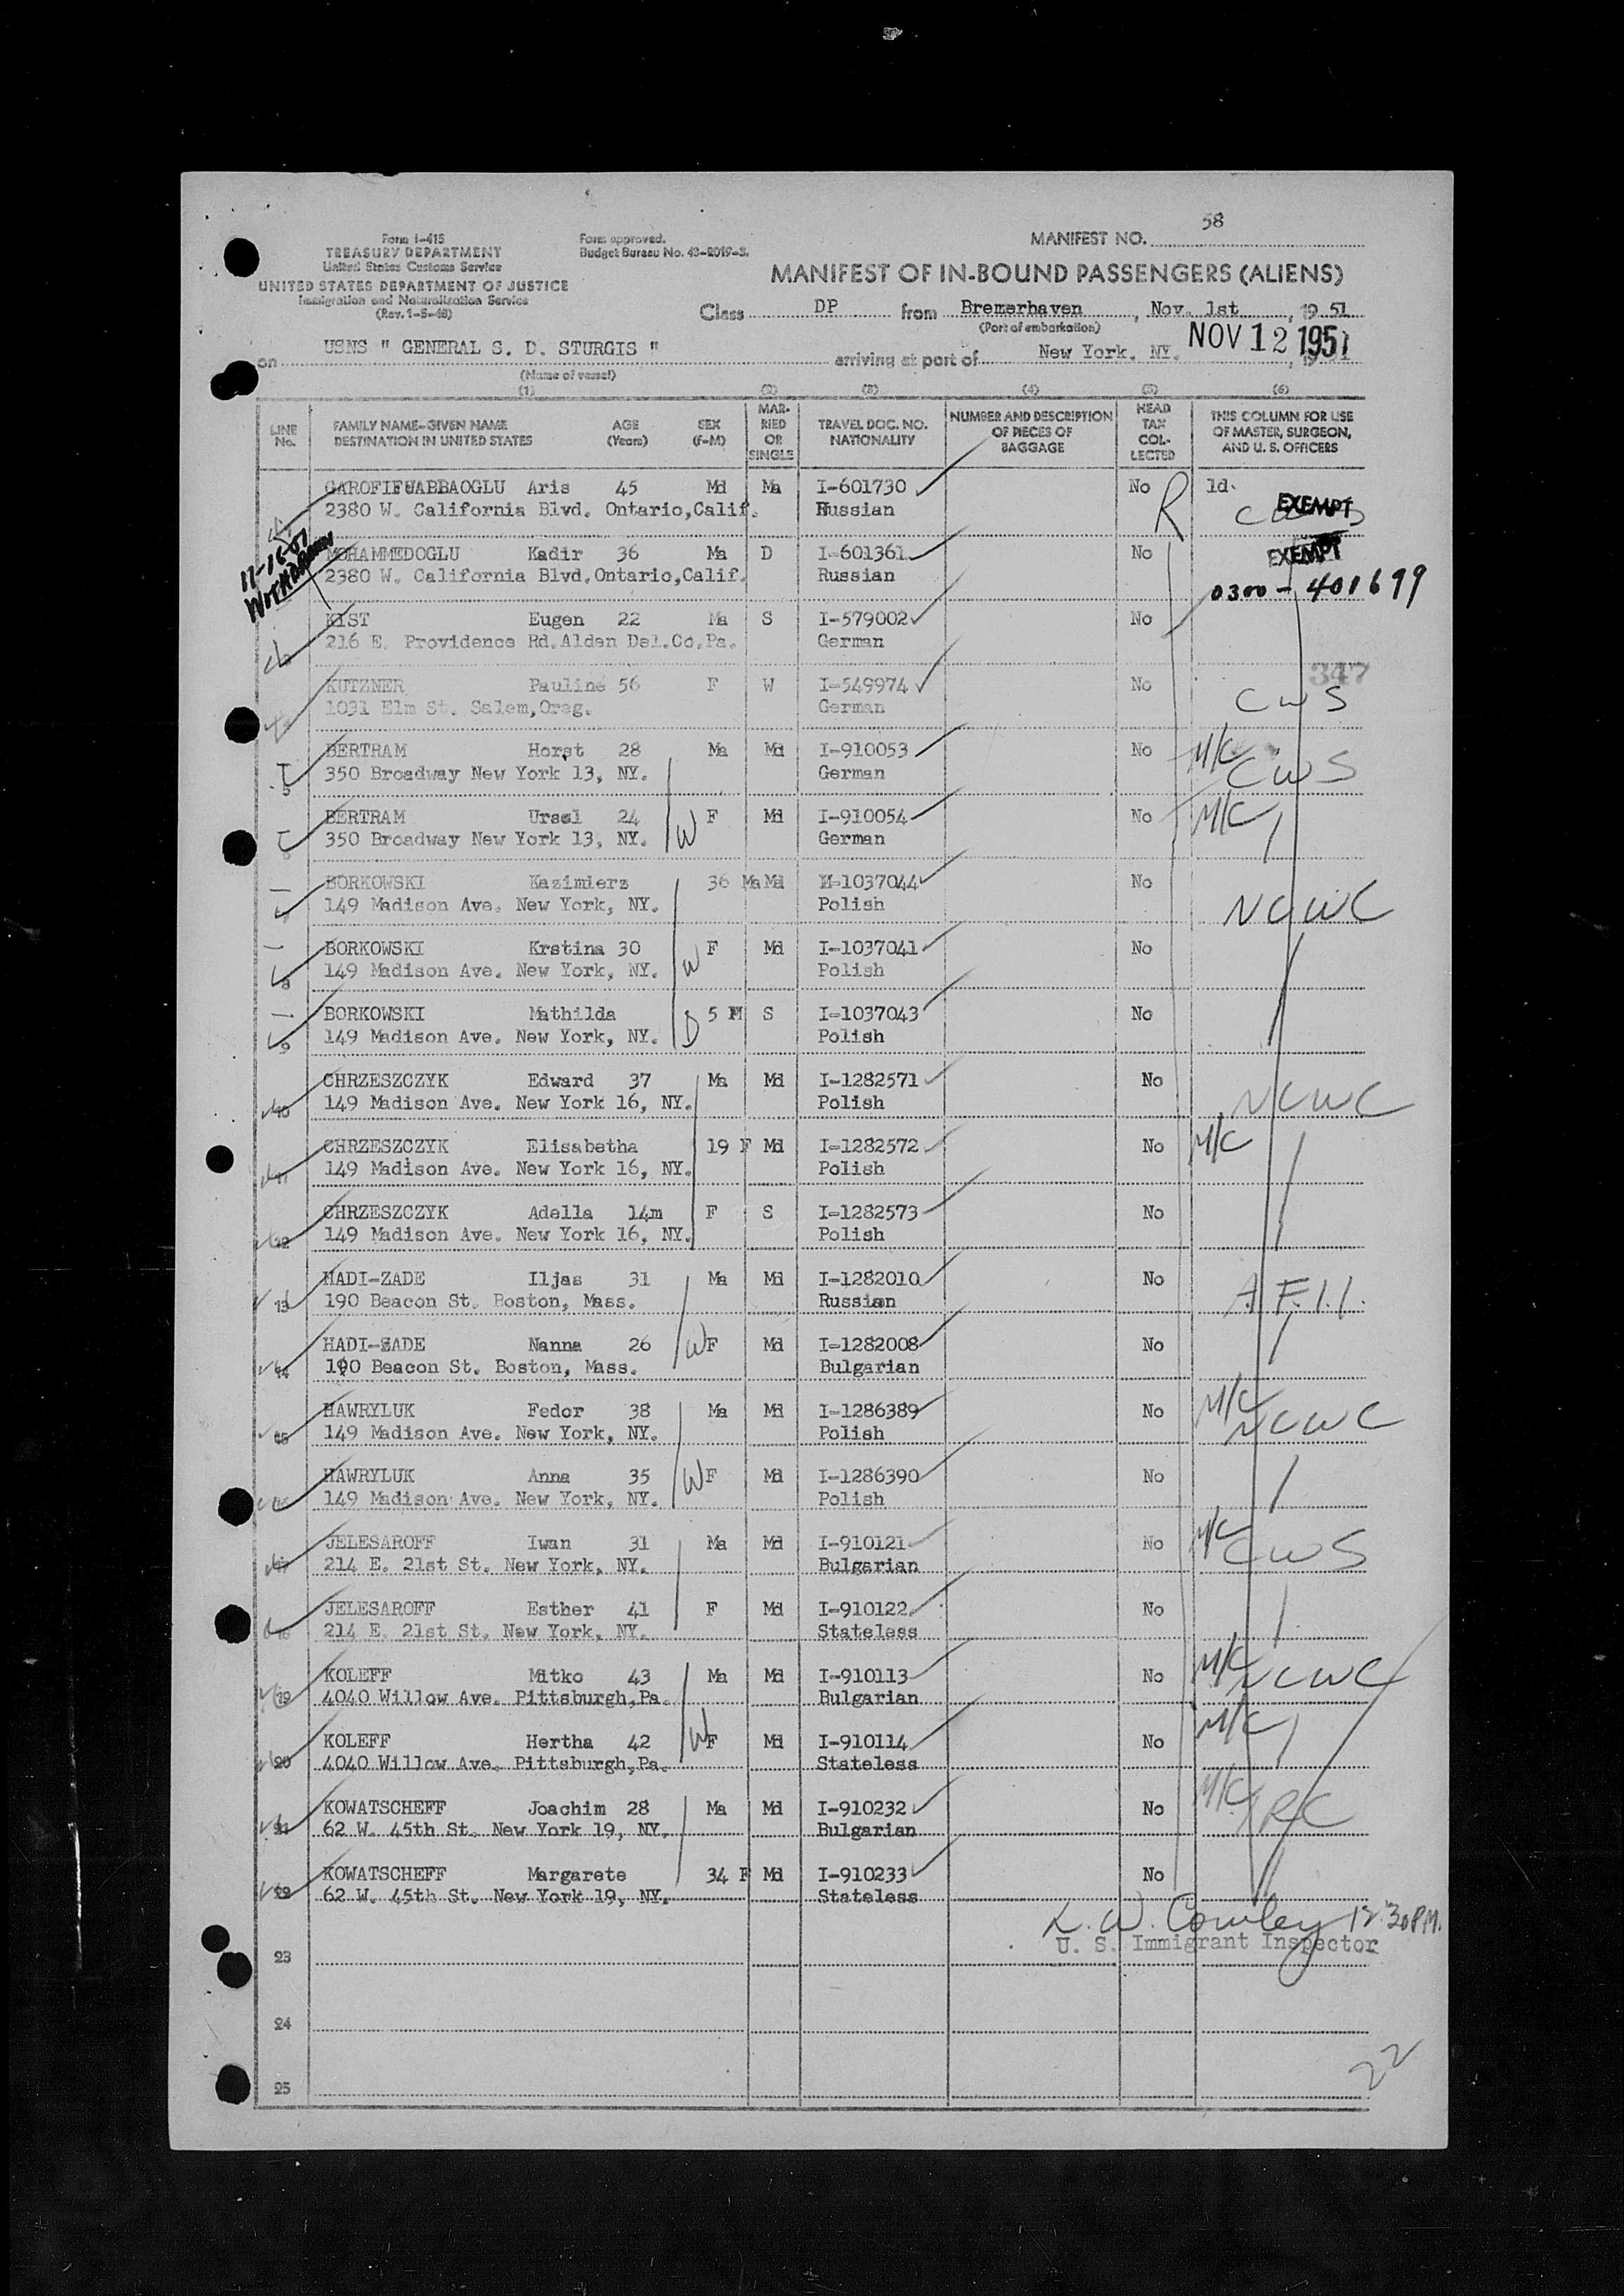 58
Form I-415
TREASURY DEPARTMENT
United States Customs Service
UNITED STATES DEPARTMENT OF JUSTICE
Immigration and Naturalization Service
(Rev. 1-5-48)
Form approved.
Budget Bureau No. 43-R019-3.
MANIFEST NO.
MANIFEST OF IN-BOUND PASSENGERS (ALIENS)
Class DP from Bremerhaven, Nov. 1st, 1951
(Port of embarkation)
on USNS " GENERAL S. D. STURGIS " arriving at port of New York. NY. NOV 12 1951
(Name of vessel)
(1) (2) (3) (4) (5) (6)
LINE No. FAMILY NAME-GIVEN NAME DESTINATION IN UNITED STATES AGE (Years) SEX (F-M) MARRIED OR SINGLE TRAVEL DOC. NO. NATIONALITY NUMBER AND DESCRIPTION OF PIECES OF BAGGAGE HEAD TAX COLLECTED THIS COLUMN FOR USE OF MASTER, SURGEON, AND U. S. OFFICERS
Aris 45 Md Ma I-601730 No R 1d. EXEMPT
2380 W. California Blvd. Ontario,Calif. Russian
11-15-51 MOHAMMEDOGLU Kadir 36 Ma D I-601361 No EXEMPT
2380 W. California Blvd.Ontario,Calif. Russian 0300-401699
KIST Eugen 22 Ma S I-579002 No
216 E. Providence Rd.Alden Del.Co.Pa. German
347
KUTZNER Pauline 56 F W I-549974 No CWS
1031 Elm St. Salem,Oreg. German
5 BERTRAM Horst 28 Ma Md I-910053 No M/C CWS
350 Broadway New York 13, NY. German
BERTRAM Ursel 24 W F Md I-910054 No M/C
350 Broadway New York 13, NY. German
BORKOWSKI Kazimierz 36 Ma Md I-1037044 No NCWC
149 Madison Ave. New York, NY. Polish
8 BORKOWSKI Krstina 30 W F Md I-1037041 No
149 Madison Ave. New York, NY. Polish
9 BORKOWSKI Mathilda D 5 S I-1037043 No
149 Madison Ave. New York, NY. Polish
10 CHRZESZCZYK Edward 37 Ma Md I-1282571 No NCWC
149 Madison Ave. New York 16, NY. Polish
11 CHRZESZCZYK Elisabetha 19 F Md I-1282572 No M/C
149 Madison Ave. New York 16, NY. Polish
12 CHRZESZCZYK Adella 14m F S I-1282573 No
149 Madison Ave. New York 16, NY. Polish
13 HADI-ZADE Iljas 31 Ma Md I-1282010 No
190 Beacon St. Boston, Mass. Russian
14 HADI-ZADE Nanna 26 W F Md I-1282008 No
190 Beacon St. Boston, Mass. Bulgarian
15 HAWRYLUK Fedor 38 Ma Md I-1286389 No M/C NCWC
149 Madison Ave. New York, NY. Polish
HAWRYLUK Anna 35 W F Md I-1286390 No
149 Madison Ave. New York, NY. Polish
17 JELESAROFF Iwan 31 Ma Md I-910121 No M/C CWS
214 E. 21st St. New York, NY. Bulgarian
18 JELESAROFF Esther 41 F Md I-910122 No
214 E. 21st St. New York, NY. Stateless
19 KOLEFF Mitko 43 Ma Md I-910113 No M/C NCWC
4040 Willow Ave. Pittsburgh,Pa. Bulgarian
20 KOLEFF Hertha 42 W F Md I-910114 No M/C
4040 Willow Ave. Pittsburgh,Pa. Stateless
21 KOWATSCHEFF Joachim 28 Ma Md I-910232 No M/C IRC
62 W. 45th St. New York 19, NY. Bulgarian
22 KOWATSCHEFF Margarete 34 F Md I-910233 No
62 W. 45th St. New York 19, NY. Stateless
L. W. Cowley 12:30 PM.
U. S. Immigrant Inspector
23
24
22
25